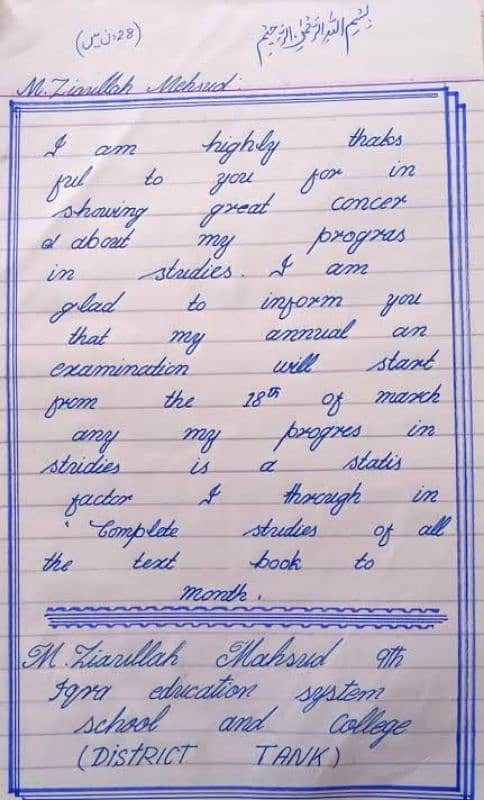 بسم اللہ الرحمن الرحیم
(28 دن میں)
M. Ziaullah Mehsud:
I am highly thaks
ful to you for in
showing great concer
d about my progras
in studies. I am
glad to inform you
that my annual an
examination will start
from the 18th of march
any my progres in
stridies is a statis
factor I through in
Complete studies of all
the text book to
month.
M. Ziaullah Mahsud 9th
Iqra education system
school and College
(DISTRICT TANK)